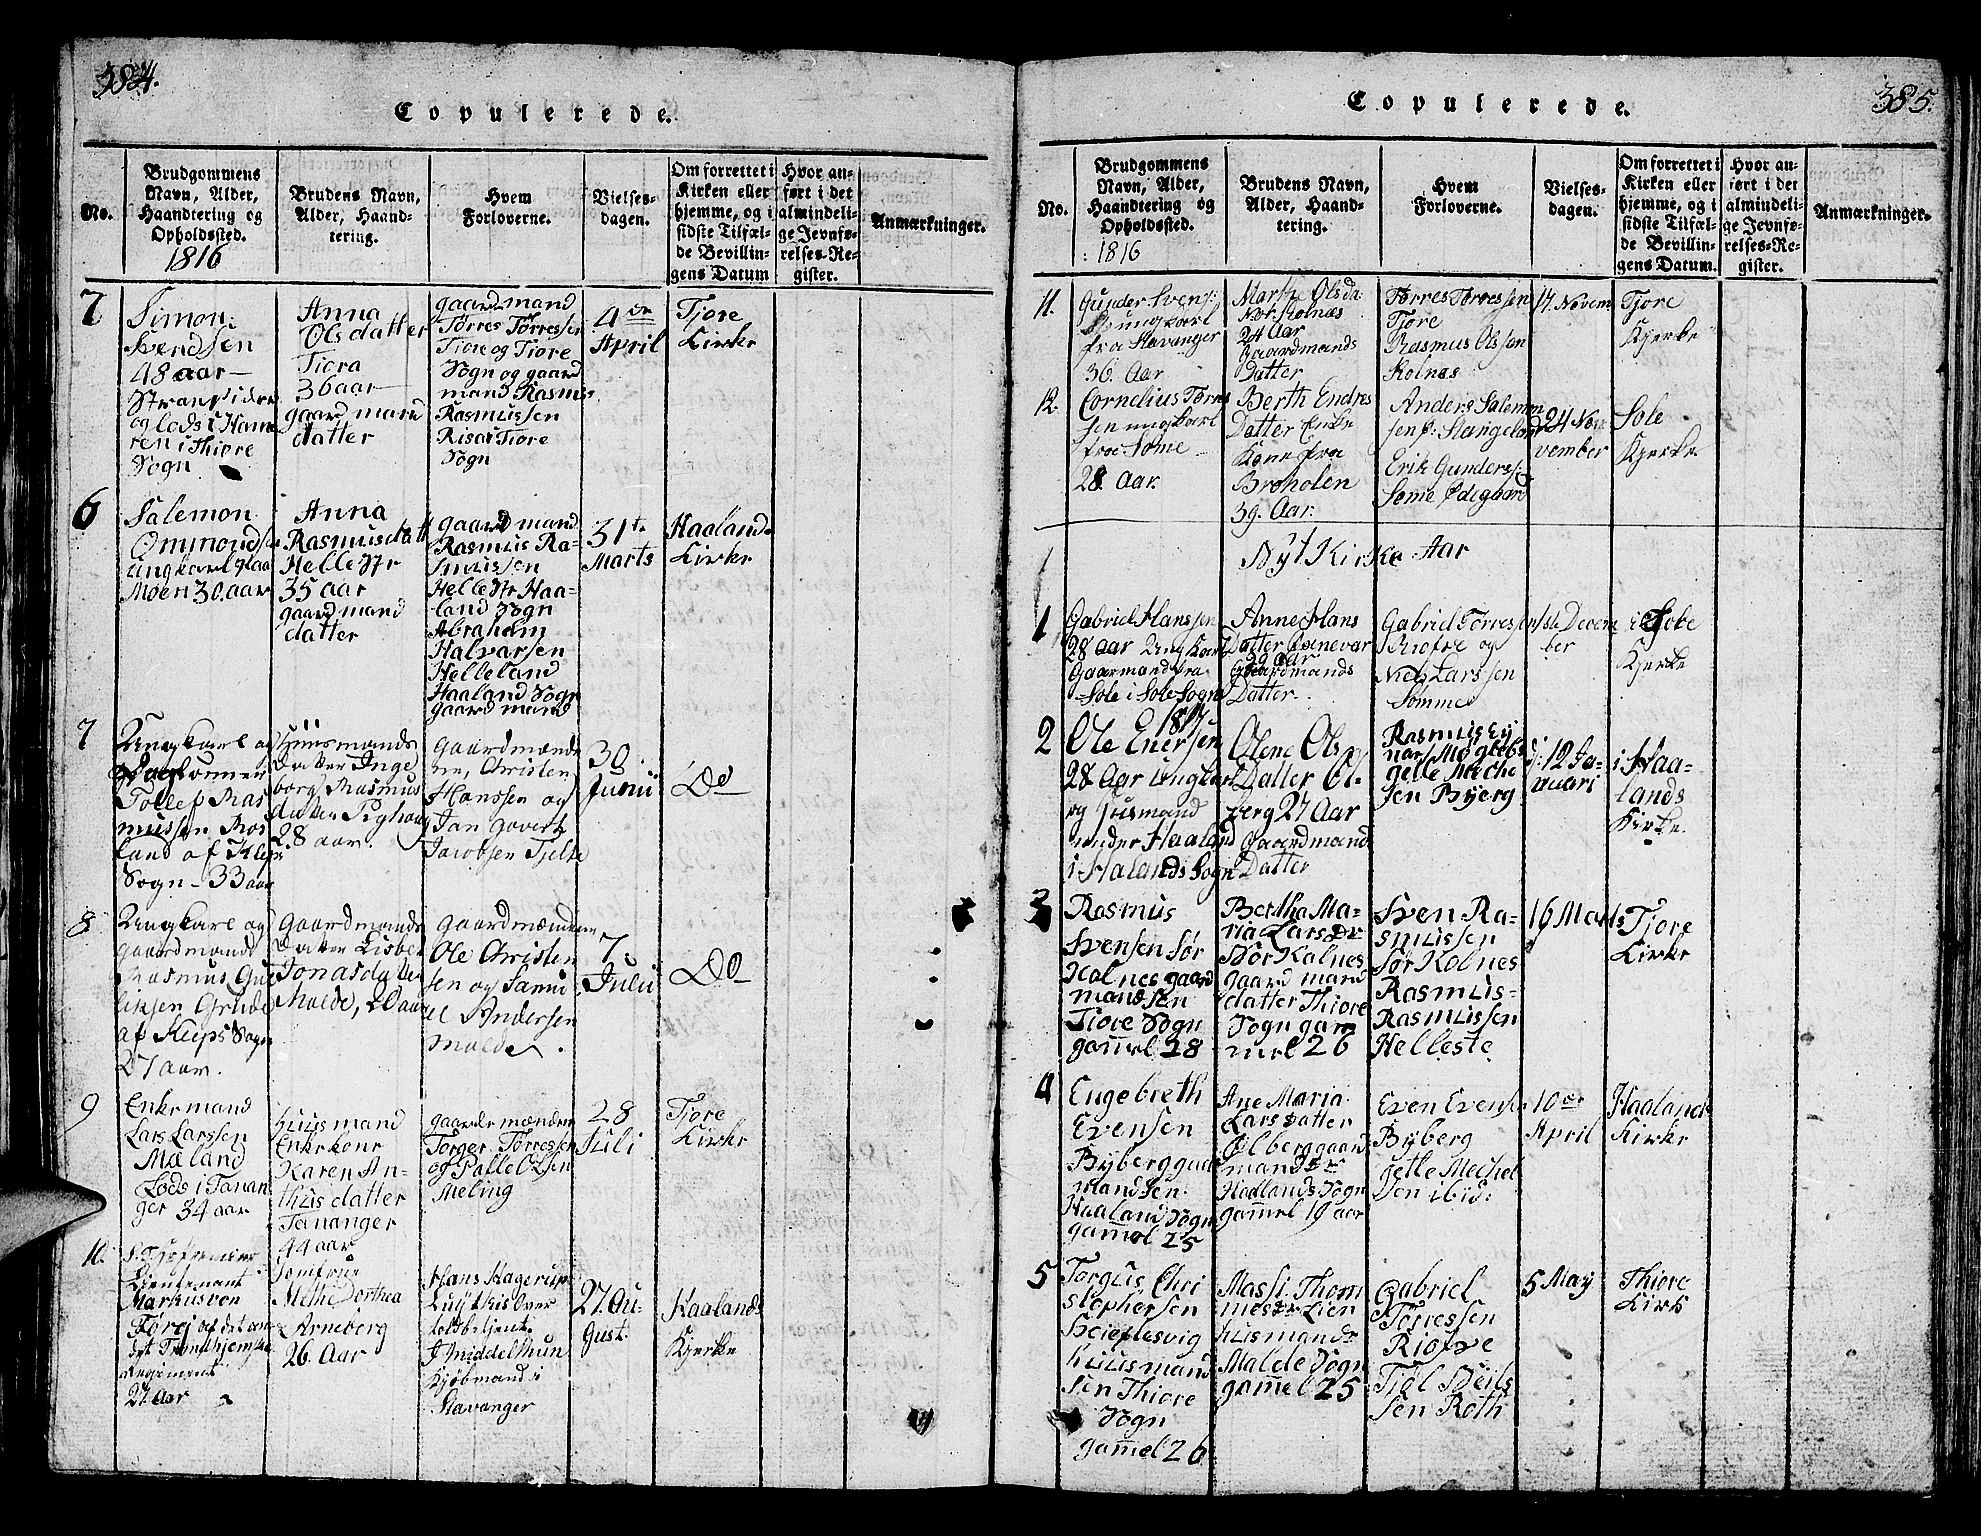 384.
Copulerede.
No.
Brudgommens
Navn, Alder,
Haandtering og
Opholdssted.
1816
Brudens Navn,
Alder, Haand-
tering.
Hvem
Forloverne.
Vielses-
dagen.
Om forrettet i
Kirken eller
hjemme, og i
sidste Tilfæl-
de Bevillin-
gens Datum
Hvor an-
ført i det
almindeli-
ge Jevnfø-
relses-Re-
gister.
Anmærkninger.
7
Simon
Svendsen
48 aar
Strandsider
og lods i Hame
ren i Thiore
Sogn
Anna
Olsdatter
Tiora
36 aar
gaardmand
datter
gaardmand
Tørres Tørressen
Tiore og Tiore
Sogn og gaard
mand Rasmus
Rasmussen
Risa i Tiore
Sogn
4de
April
Tjore
Kirke
6
Salemon
Ommondsen
ungkarl Haa
Moen 30. aar
Anna
Rasmusdatt
Hellestr
35 aar
gaardmand
datter
gaardmand
Rasmus Ra-
smussen
Hellestr Haa-
land Sogn
Abraham
Halvarsen
Helleland
Haaland Sogn
gaardmand
31te
Marts
Haaland
Kirke
7
Ungkarl og
Tollef Ras
mussen Ros
land af Klep
Sogn - 33 aar
Huusmands
Datter Inge
borg Rasmus
datter
28 aar.
Gaardmænde
ne, Christen
Hanssen og
Jan Govert
Jacobsen Tjelte
30
Junii
Do
8
Ungkarl og
gaardmands
Rasmus
Grude
af Kleps Sogn
27 aar.
Gaardmands
Datter Lisbet
Jonasdatter
Malde, 20 aar
Gaardmændene
Ole Christen
sen og Samu
el Andersen
Malde.
7
Julii
Do
9
Enkemand
Lars Larssen
Mæland
Lods i Tanan
ger 34 aar
Huusmand
Enkekone
Karen An-
thusdatter
Tananger
44 aar
gaardemænden
Torger Tørressen
og Palle Olsen
Meling
28
Juli
Tjore
Kirke
10.
Lieutenant
Markus von
det Trondhjemske
Regiment
27 Aar
Jomfrue
Methe Dorthea
Arneberg
26. Aar
Hans Hagerup
Over
toldbetjent.
J Middelthun
Kjøbmand i
Stavanger
27. Au-
gust.
Haalands
Kjerke
385.
Copulerede.
No.
Brudgommens
Navn, Alder,
Haandtering og
Opholdssted.
1816
Brudens Navn,
Alder, Haand-
tering.
Hvem
Forloverne.
Vielses-
dagen.
Om forrettet i
Kirken eller
hjemme, og i
sidste Tilfæl-
de Bevillin-
gens Datum.
Hvor an-
ført i det
almindeli-
ge Jevnfø-
relses-Re-
gister.
Anmærkninger.
11.
Gunder Svens:
ungkarl
fra Stavanger
36. Aar
Marthe Olsda:
Nor. Kolnæs
24 Aar
Gaardmands
Datter
Tørres Tørressen
Tjore
Rasmus Olssen
Kolnæs
17 Novem
Tjore
Kjerke
12.
Cornelius Tørres
sen ungkarl
fra Sømme
28. Aar.
Berth Endres
Datter Enke
Kone fra
Broholen
39. Aar.
Anders Salemon
sen p: Stangeland
Erik Gunderss:
Søme Ødegaard
24 No-
vember
Sole
Kjerke
Nyt Kirke Aar
1
Gabriel Hanssen
28 Aar Ungkarl
Gaarmand fra
Sole i Sole Sogn
Anne Hans
Datter
29 Aar
Gaardmands
Datter.
Gabriel Tørressen
og
Niels Larssen
Sømme
1ste Decem
ber
i Sole
Kjerke
1817
2
Ole Enersen
28 Aar Ungkarl
og Husmand
under Haaland
i Halands Sogn
Olene Ols
Datter Øl-
berg 27 Aar
Gaardmands
Datter
Rasmus Ey
nars Møglebo
gelle Meche
sen Byberg
d: 12 Ja-
nuari
i Haa-
lands
Kirke.
3
Rasmus
Svensen Sør
Kolnes gaard
mandsen
Tiore Sogn
gammel 28
Bertha Ma-
ria Lars Dr
Sør Kalnes
gaardmand
datter Thiore
Sogn gam
mel 26
Sven Ra-
smussen
Sør Kolnes
Rasmus-
Rasmussen
Helleste
16 Marts
Tjore
Kirke
4
Engebreth
Evensen
Byberg gaar
mandsen
Haaland Sogn
gammel 25
Ane Maria
Larsdatter
Ølberg gaard
mandsdr
Hadlands Sogn
gammel 19 aar
Even Evensen
Byberg
gelle Mechel
sen ibid:
10de
April
Haalands
Kirke
5
Torgus Chri
stophersen
huusmand
sen Thiore
Sogn
gammel 26
Massi. Thom
mesdr Lien
husmandr
Malde Sogn
gammel 25
Gabriel
Tørressen
Riofve
Tiøl Sveils
sen Roth
5 May
Thiore
Kirk